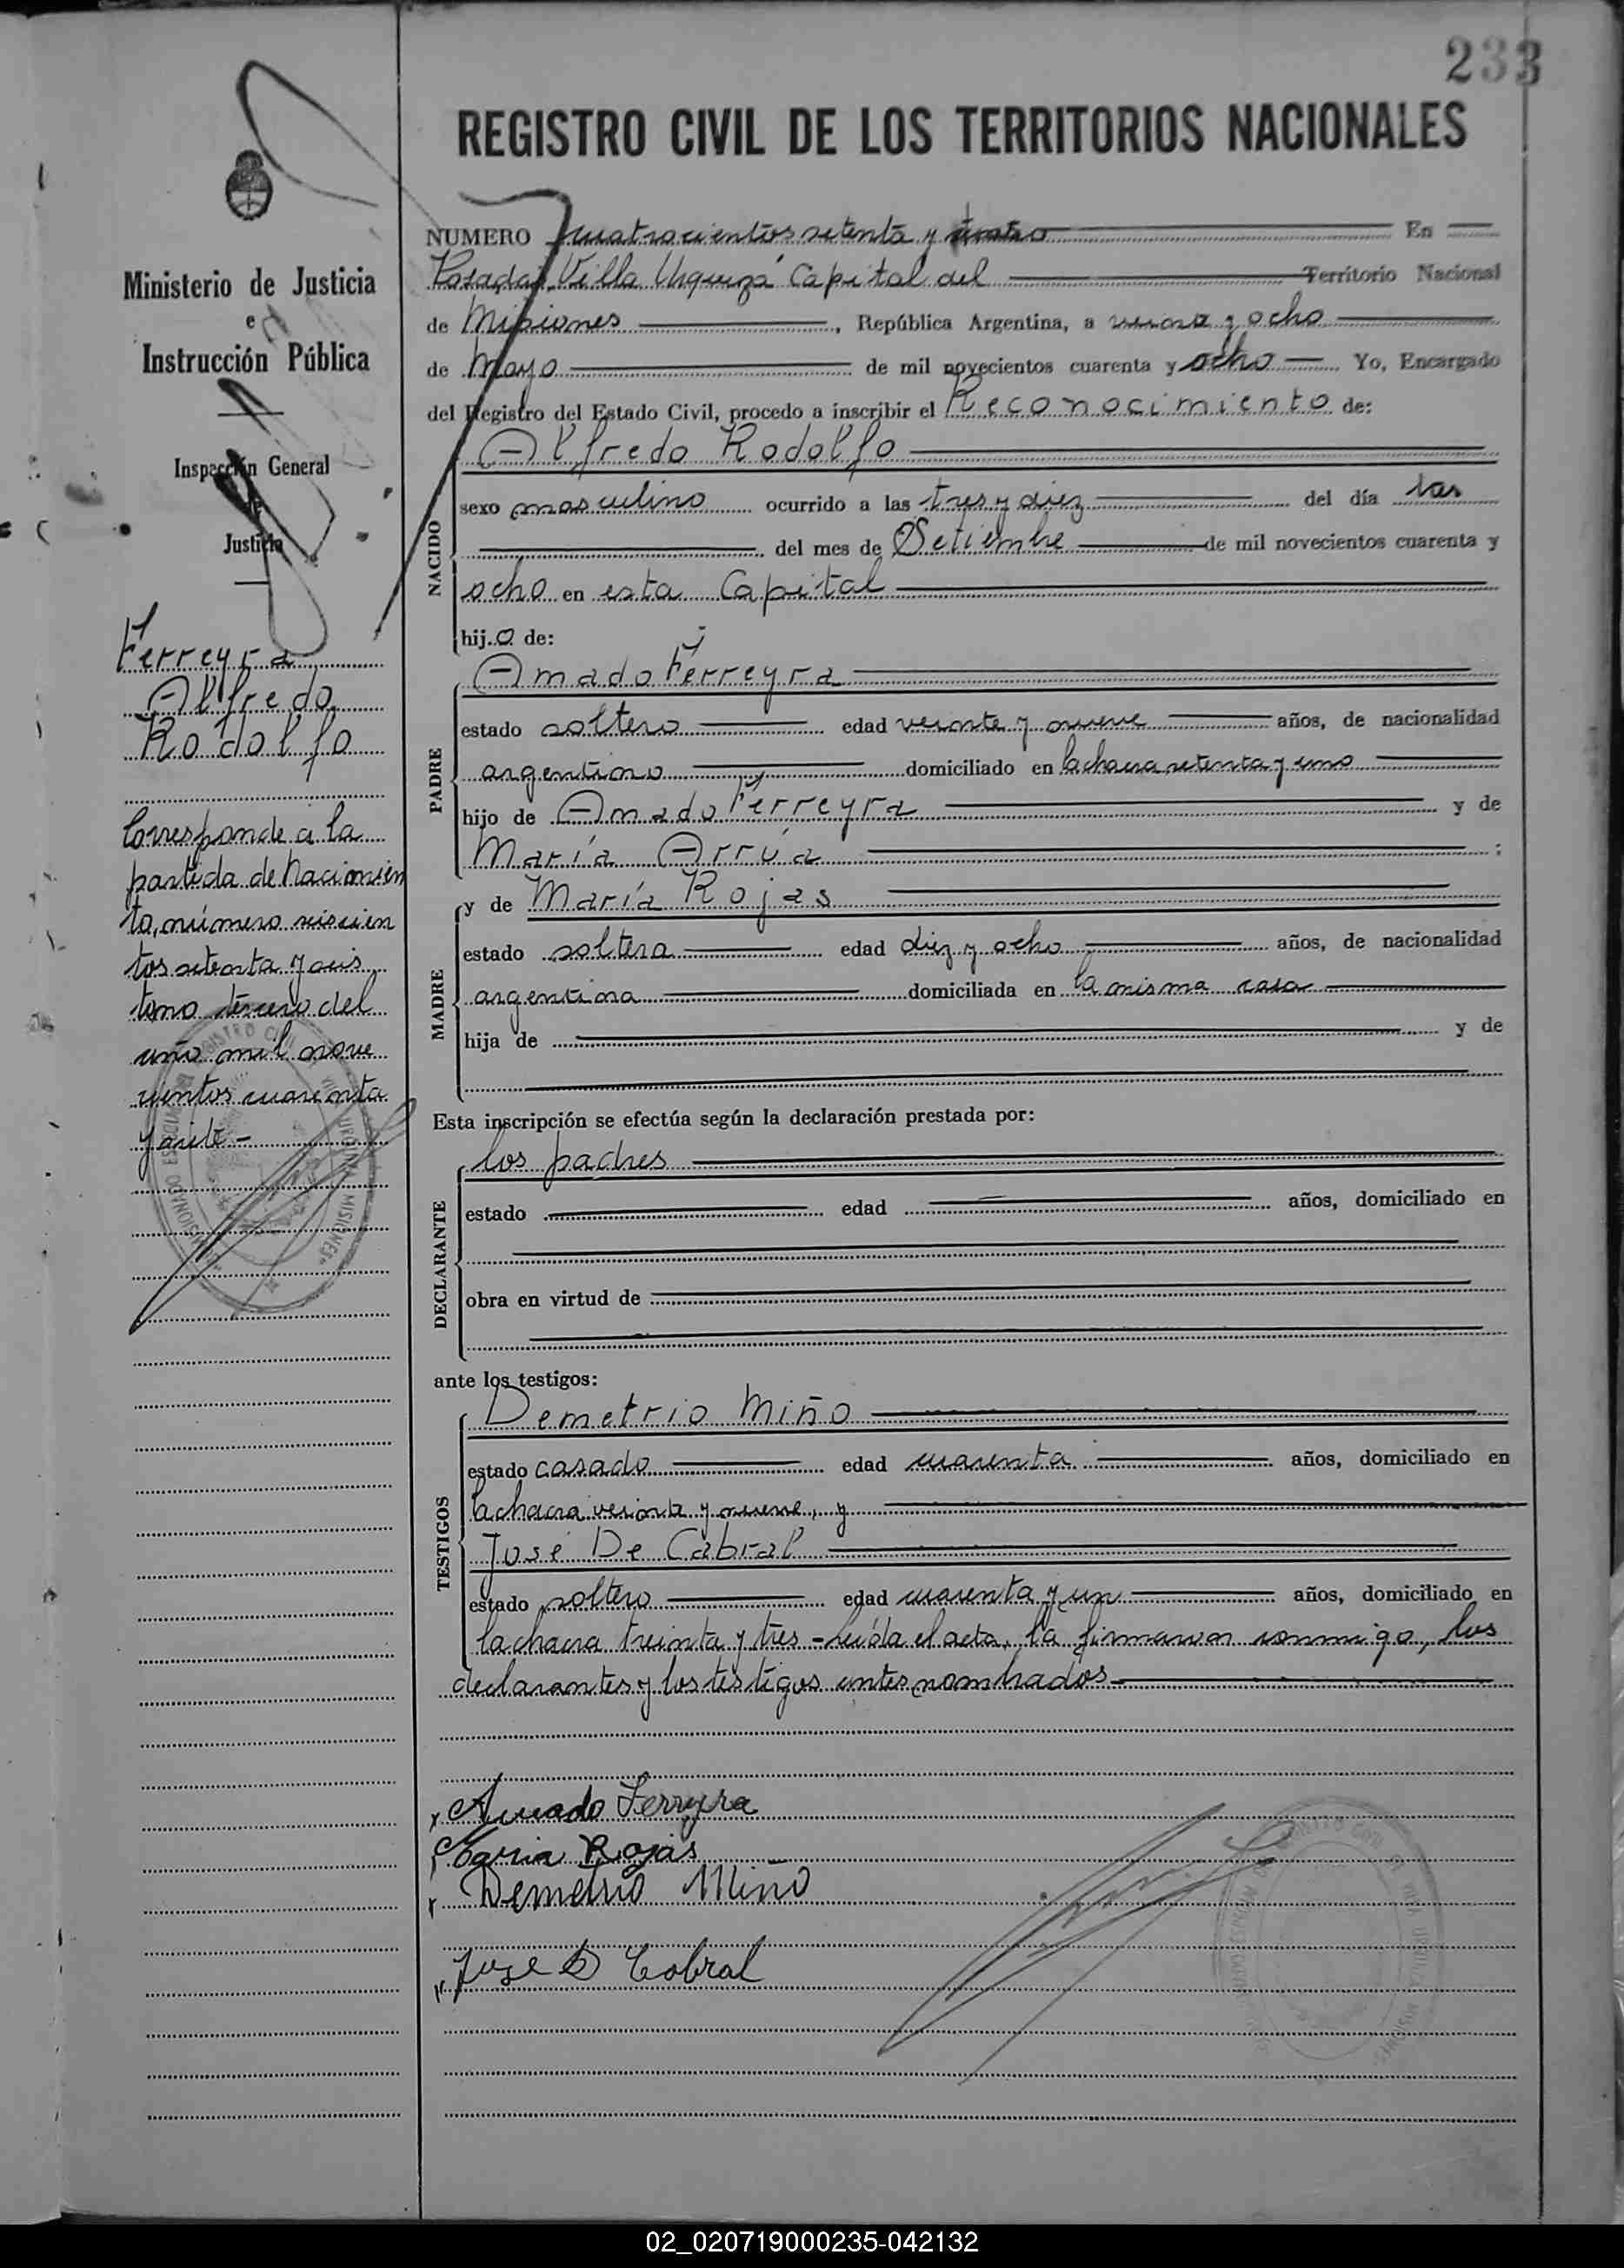 233
REGISTRO CIVIL DE LOS TERRITORIOS NACIONALES
Ministerio de Justicia
e
Instrucción Pública
Inspección General
de
Justicia
Ferreyra
Alfredo
Rodolfo
Corresponde a la
partida de Nacimien
to, número seiscien
tos setenta y seis
tomo tercero del
año mil nove
cientos cuarenta
y siete -
NUMERO cuatrocientos setenta y En
Posadas, Villa Urquiza Capital del Territorio Nacional
de Misiones, República Argentina, a veinte y ocho
de Mayo de mil novecientos cuarenta y ocho Yo, Encargado
del Registro del Estado Civil, procedo a inscribir el Reconocimiento de:
NACIDO
Alfredo Rodolfo
sexo masculino ocurrido a las tres y diez del día
del mes de Setiembre de mil novecientos cuarenta y
ocho en esta Capital
hijo de:
PADRE
Amado Ferreyra
estado soltero edad veinte y nueve años, de nacionalidad
argentino domiciliado en la chacra setenta y uno
hijo de Amado Ferreyra y de
María Arrúa :
MADRE
y de María Rojas
estado soltera edad diez y ocho años, de nacionalidad
argentina domiciliada en la misma casa
hija de y de
Esta inscripción se efectúa según la declaración prestada por:
DECLARANTE
los padres
estado edad años, domiciliado en
obra en virtud de
ante los testigos:
TESTIGOS
Demetrio Miño
estado casado edad cuarenta años, domiciliado en
la chacra veinte y nueve, y
José De Cabral
estado soltero edad cuarenta y un años, domiciliado en
la chacra treinta y tres - Leída el acta, la firmaron conmigo, los
declarantes y los testigos antes nombrados -
Amado Ferreyra
Maria Rojas
Demetrio Miño
Jose D Cabral
02_020719000235-042132